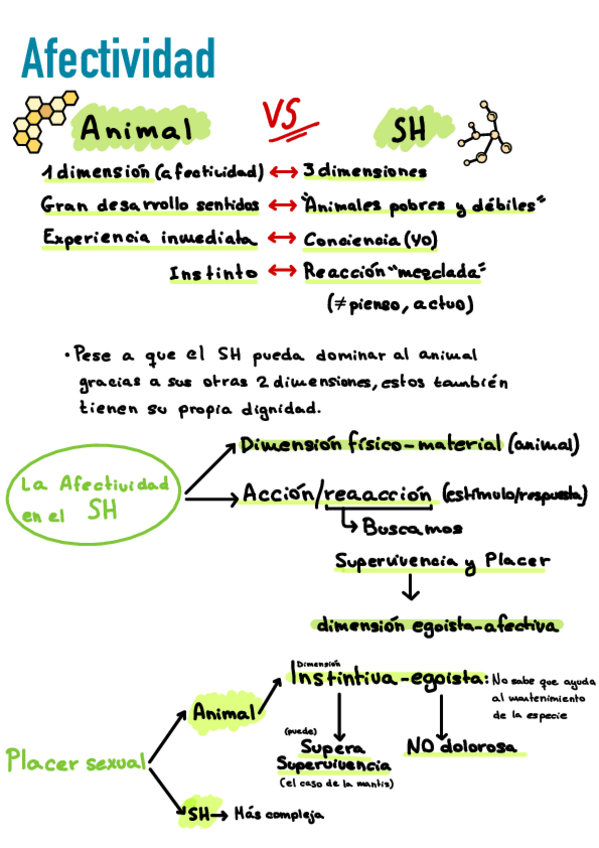 Afectividad
Animal VS SH
1 dimensión (afectividad) ↔ 3 dimensiones
Gran desarrollo sentidos ↔ "Animales pobres y débiles"
Experiencia inmediata ↔ Conciencia (yo)
Instinto ↔ Reacción "mezclada"
(≠ pienso, actuo)
· Pese a que el SH pueda dominar al animal
gracias a sus otras 2 dimensiones, estos también
tienen su propia dignidad.
La Afectividad
en el SH
Dimensión físico-material (animal)
Acción/reaacción (estímulo/respuesta)
Buscamos
Supervivencia y Placer
dimensión egoista-afectiva
Placer sexual
Animal
Dimensión
Instintiva-egoista: No sabe que ayuda
al mantenimiento
de la especie
(puede)
Supera
Supervivencia
(el caso de la mantis)
NO dolorosa
SH → Más compleja